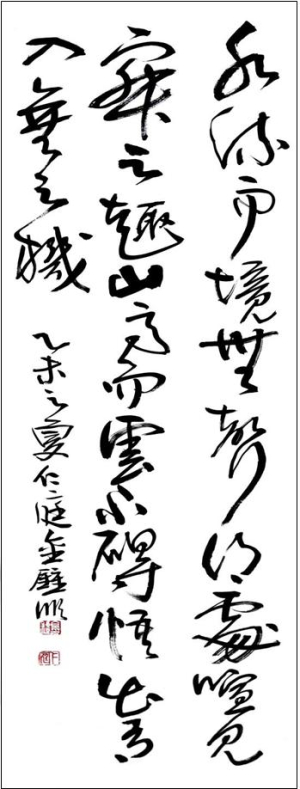 水流而境無聲得處喧見
寂之趣山高而雲不碍悟出有
入無之機
乙未之夏仁庭金壁順